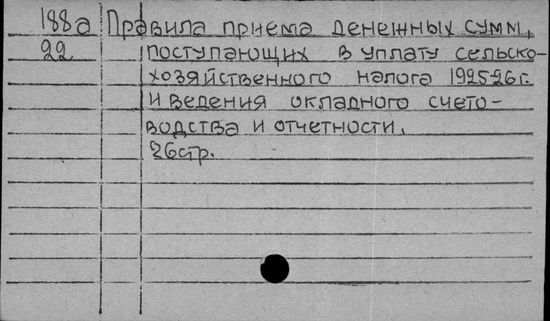 188а Правила приема денежных сумм,
22 поступающих в уплату сельско-
хозяйственного налога 1925-26 г.
и ведения окладного счето-
водства и отчетности.
26стр.